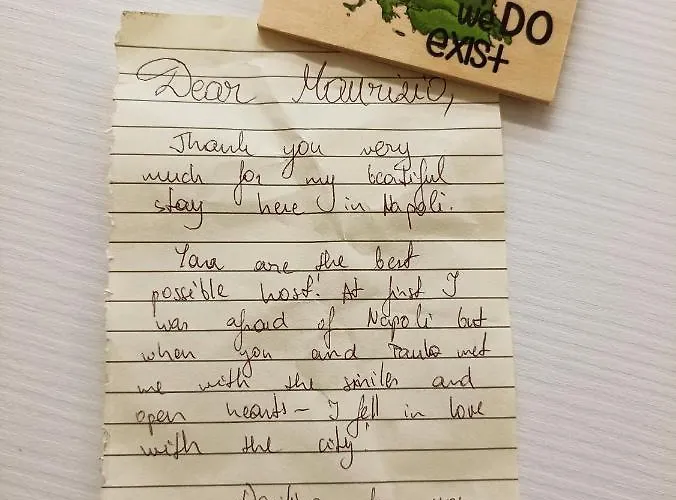 we DO
exist
Dear Maurizio,
Thank you very
much for my beautiful
stay here in Napoli.
You are the best
possible host! At first I
was afraid of Napoli but
when you and met
me with the smiles and
open hearts – I fell in love
with the city!